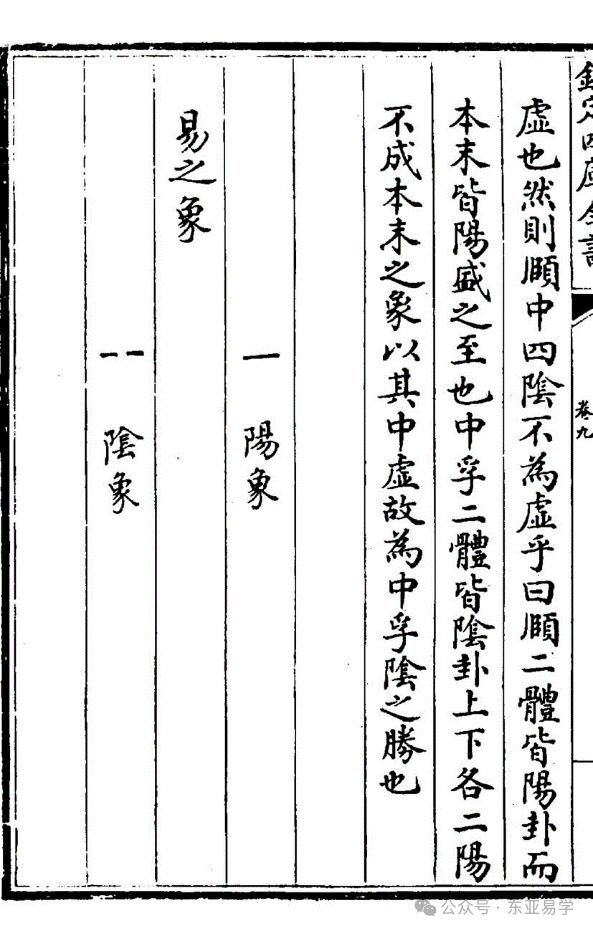 欽定四庫全書
卷九
虛也然則頤中四陰不為虛乎曰頤二體皆陽卦而
本末皆陽盛之至也中孚二體皆陰卦上下各二陽
不成本末之象以其中虛故為中孚陰之勝也
⚊陽象
易之象
⚋陰象
公众号·东亚易学